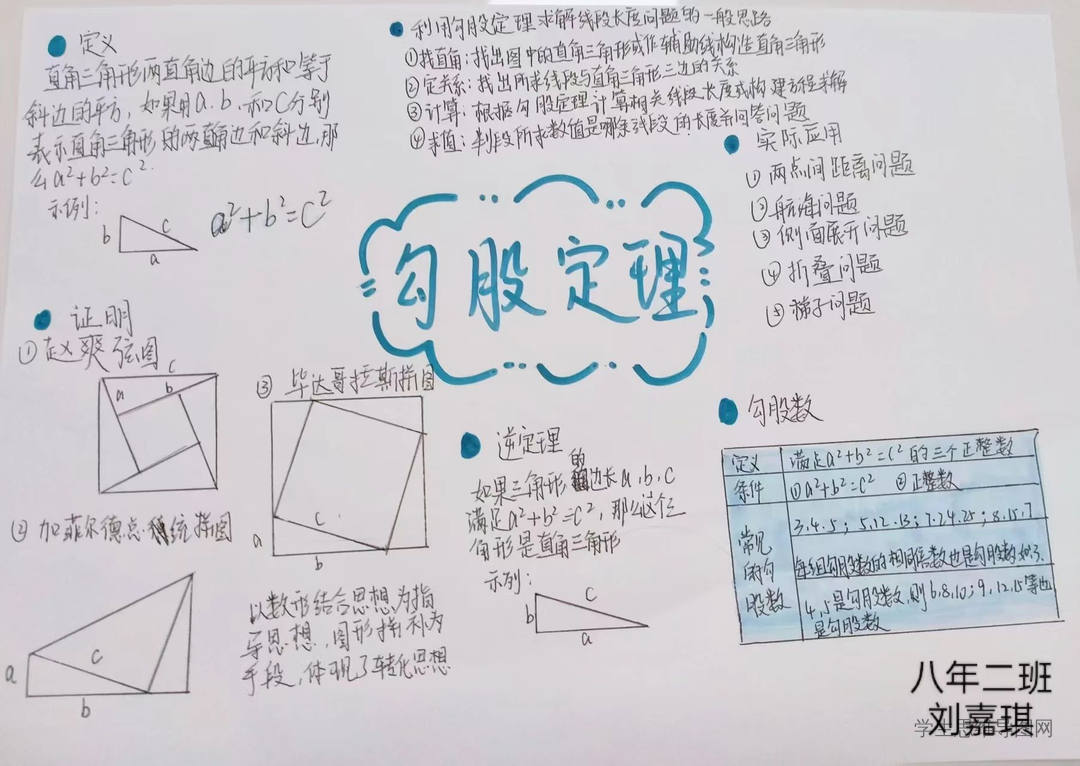 定义
直角三角形两直角边的平方和等于
斜边的平方，如果用a.b.和C分别
表示直角三角形的两直角边和斜边,那
么a²+b²=c².
示例：
b
c
a
a²+b²=c²
利用勾股定理求解线段长度问题的一般思路
①找直角：找出图中的直角三角形或作辅助线构造直角三角形
②定关系：找出所求线段与直角三角形三边的关系
③计算：根据勾股定理计算相关线段长度或构建方程求解
④求值：判段所求数值是哪条线段的长度和问答问题
实际应用
①两点间距离问题
②航海问题
③侧面展开问题
④折叠问题
⑤梯子问题
勾股定理
证明
①赵爽弦图
c
a
b
②加菲尔德总统拼图
a
c
b
③毕达哥拉斯拼图
a
c
b
以数形结合思想为指
导思想，图形拼补为
手段，体现了转化思想
逆定理
如果三角形的边长a.b.c
满足a²+b²=c²，那么这个三
角形是直角三角形
示例：
b
c
a
勾股数
定义 满足a²+b²=c²的三个正整数
条件 ①a²+b²=c² ②正整数
常见的勾股数
3.4.5；5.12.13；7.24.25；8.15.17
每组勾股数的相同倍数也是勾股数如3.
4.5是勾股数,则6.8.10；9.12.15等也
是勾股数
八年二班
刘嘉琪
学生思维导图网